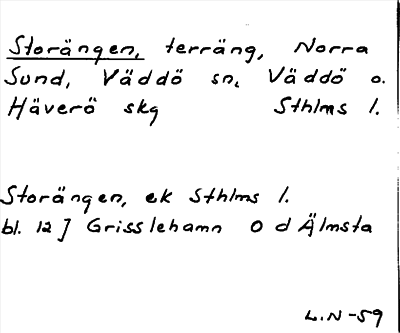 Storängen, terräng, Norra
Sund, Väddö sn, Väddö o.
Häverö skg Sthlms l.
Storängen, ek Sthlms l.
bl. 12] Grisslehamn O d Älmsta
L.N-59